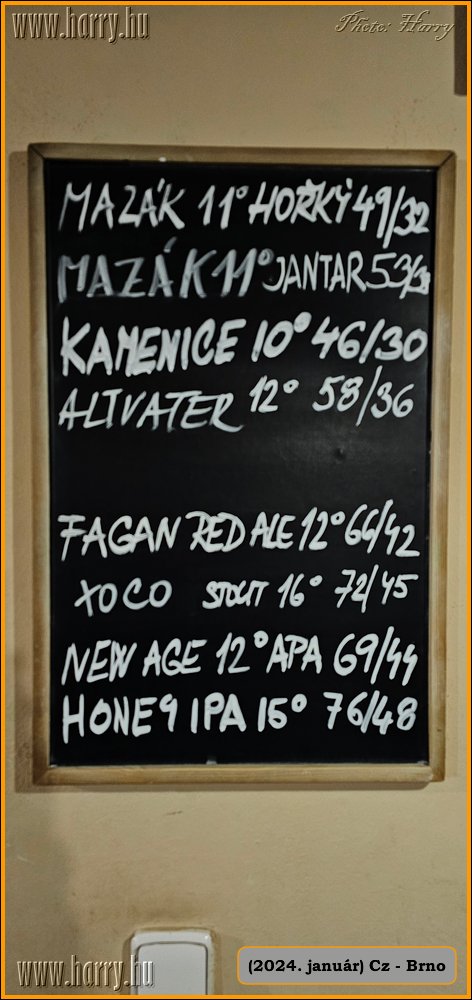 www.harry.hu
Photo: Harry
MAZÁK 11° HOŘKÝ 49/32
MAZÁK 11° JANTAR 53/38
KAMENICE 10° 46/30
ALTVATER 12° 58/36
FAGAN RED ALE 12° 66/42
XOCO STOUT 16° 72/45
NEW AGE 12° APA 69/44
HONEY IPA 15° 76/48
www.harry.hu
(2024. január) Cz - Brno